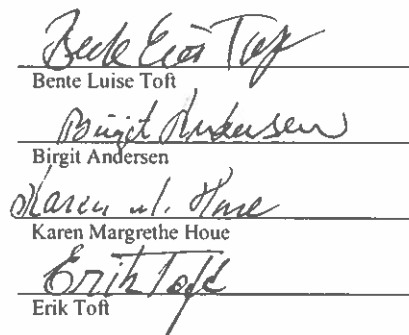 Bente Luise Toft
Bente Luise Toft
Birgit Andersen
Birgit Andersen
Karen M. Houe
Karen Margrethe Houe
Erik Toft
Erik Toft